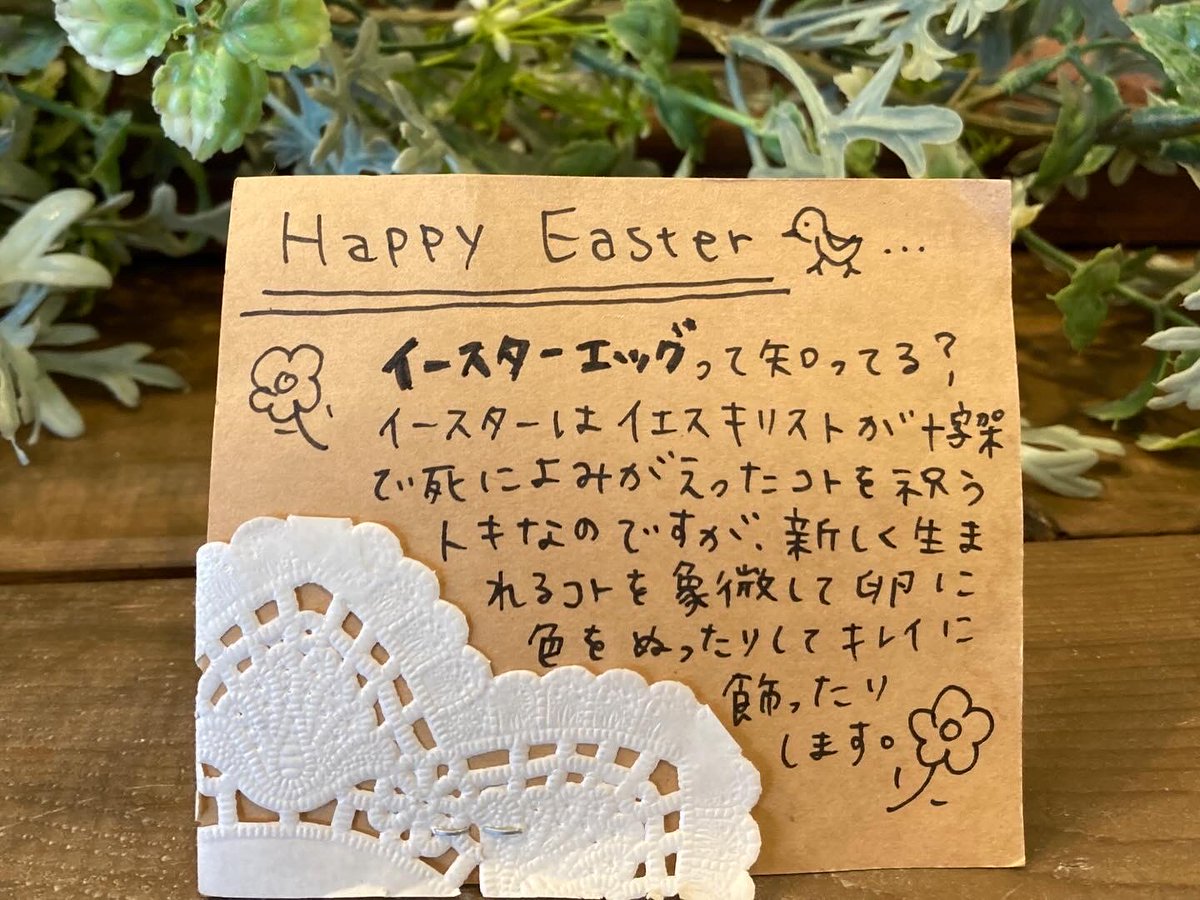 Happy Easter ...
イースターエッグって知ってる?
イースターはイエスキリストが十字架
で死によみがえったコトを祝う
トキなのですが、新しく生ま
れるコトを象徴して卵に
色をぬったりしてキレイに
飾ったり
します。